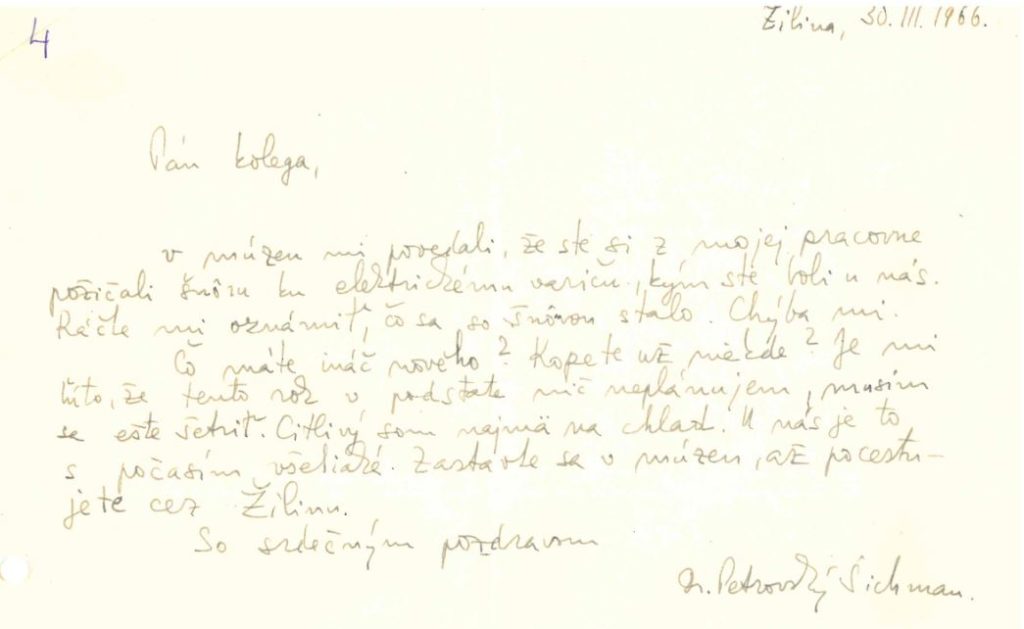 4
Žilina, 30. III. 1966.
Pán kolega,
v múzeu mi povedali, že ste si z mojej pracovne
požičali šnôru ku elektrickému variču, kým ste boli u nás.
Ráčte mi oznámiť, čo sa so šnôrou stalo. Chýba mi.
Čo máte ináč nového? Kopete už niekde? Je mi
ľúto, že tento rok v podstate nič neplánujem, musím
se ešte šetriť. Citlivý som najmä na chlad. U nás je to
s počasím všeliaké. Zastavte sa v múzeu, až pocestu-
jete cez Žilinu.
So srdečným pozdravom
Dr. Petrovský Šichman.